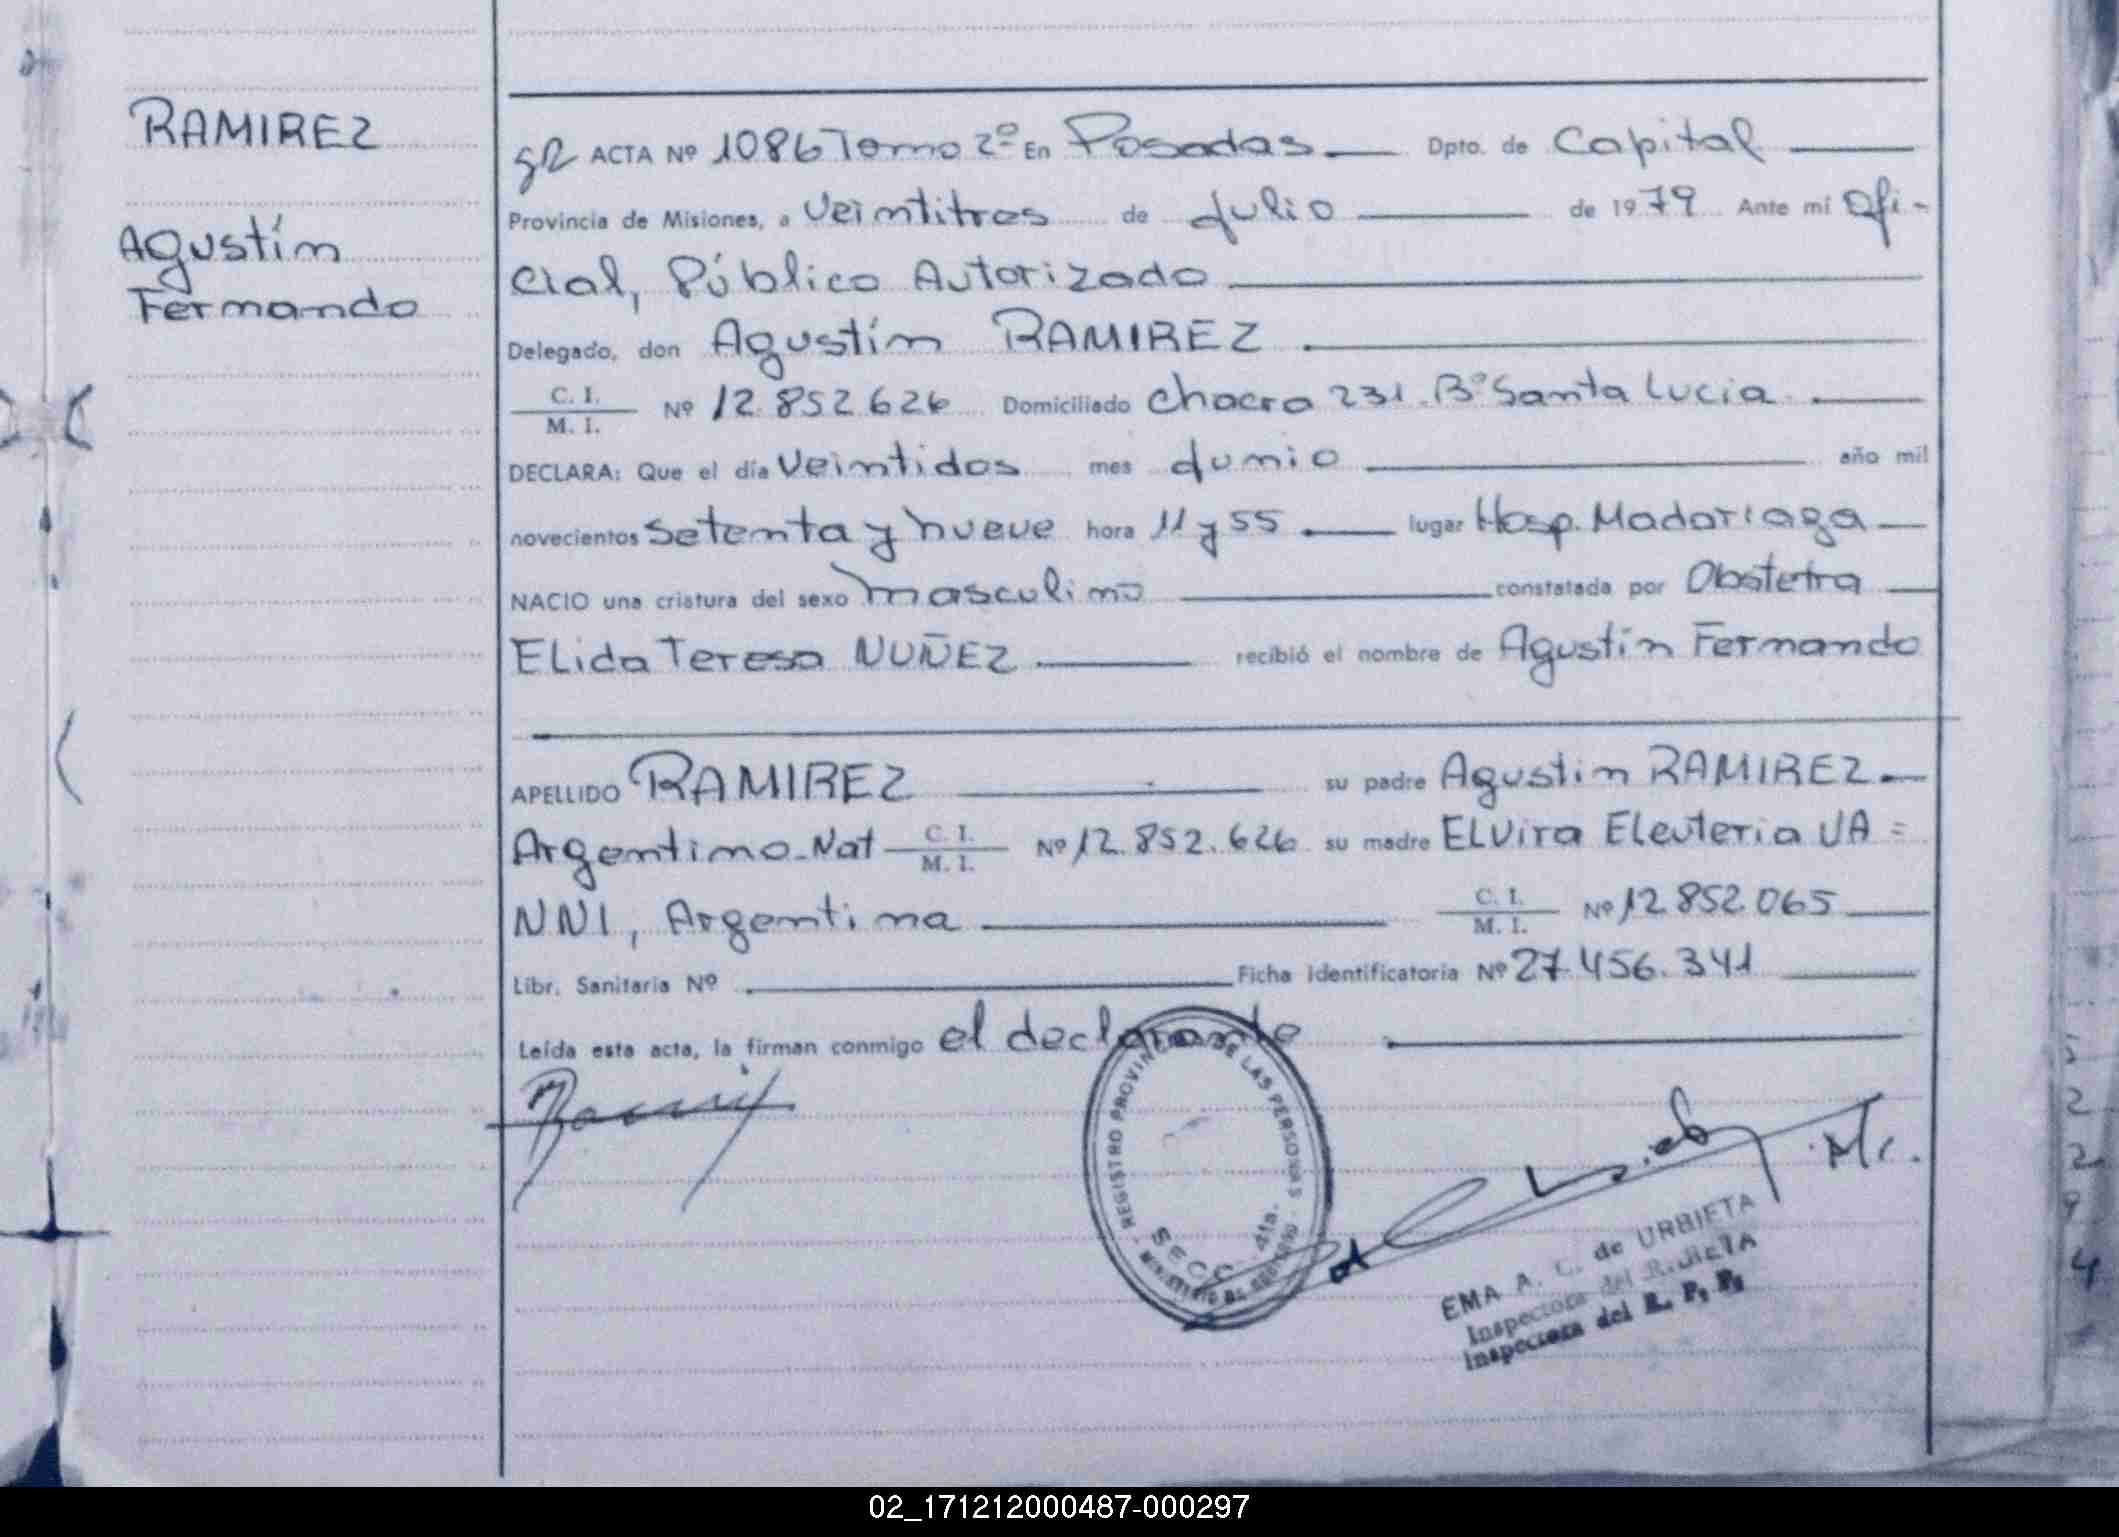 RAMIREZ
Agustín
Fernando
ACTA Nº 1086 Tomo 2º En Posadas Dpto. de Capital
Provincia de Misiones, a Veintitres de Julio de 1979 Ante mí Ofi-
cial, Público Autorizado
Delegado, don Agustín RAMIREZ
C. I.
M. I. Nº 12.852.626 Domiciliado Chacra 231. Bº Santa Lucia
DECLARA: Que el día Veintidos mes Junio año mil
novecientos Setenta y nueve hora 11 y 55 lugar Hosp. Madariaga
NACIO una criatura del sexo masculino constatada por Obstetra
ELida Teresa NUÑEZ recibió el nombre de Agustín Fernando
APELLIDO RAMIREZ su padre Agustin RAMIREZ
Argentino-Nat C. I.
M. I. Nº 12.852.626 su madre ELvira Eleuteria VA =
NNI, Argentina C. I.
M. I. Nº 12.852.065
Libr. Sanitaria Nº Ficha identificatoria Nº 27.456.341
Leída esta acta, la firman conmigo el declarante
REGISTRO PROVINCIAL DE LAS PERSONAS
SECC. 4ta.
EMA A. C. de URBIETA
Inspectora del R. P. P.
02_171212000487-000297